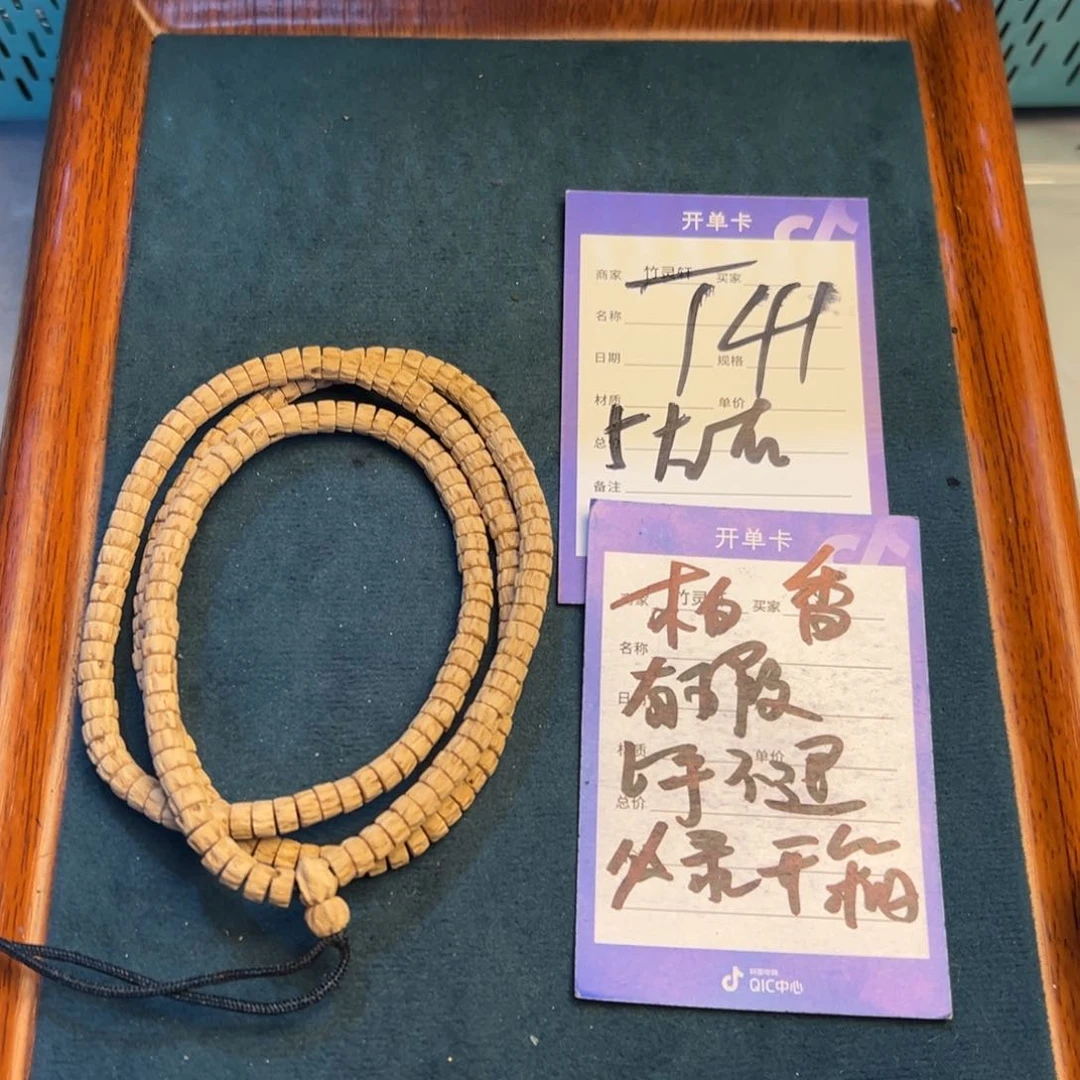 开单卡
商家 竹灵轩 买家
名称
日期 规格
材质 单价
总
备注
开单卡
柏香
商家 竹灵 买家
名称
有瑕
日
上手不退
材质 单价
总价
必录开箱
抖音电商
QIC中心